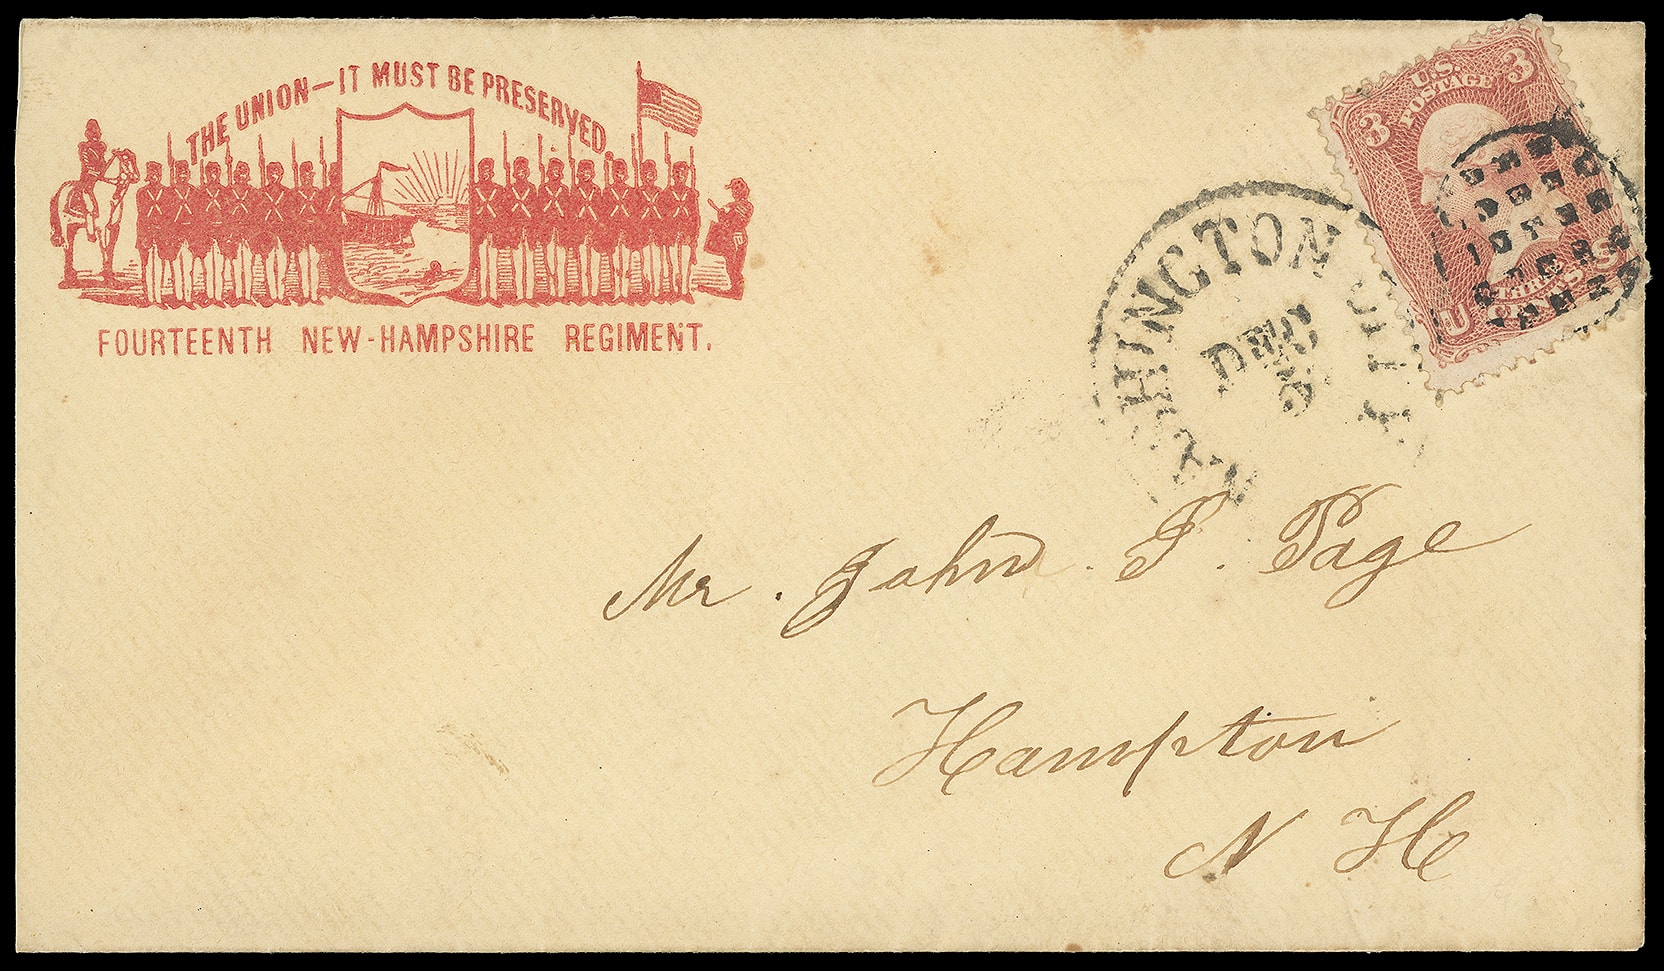 THE UNION—IT MUST BE PRESERVED.
FOURTEENTH NEW-HAMPSHIRE REGIMENT.
3 U.S. POSTAGE 3
U THREE CENTS S
WASHINGTON CITY
DEC
Mr. John P. Page
Hampton
N H